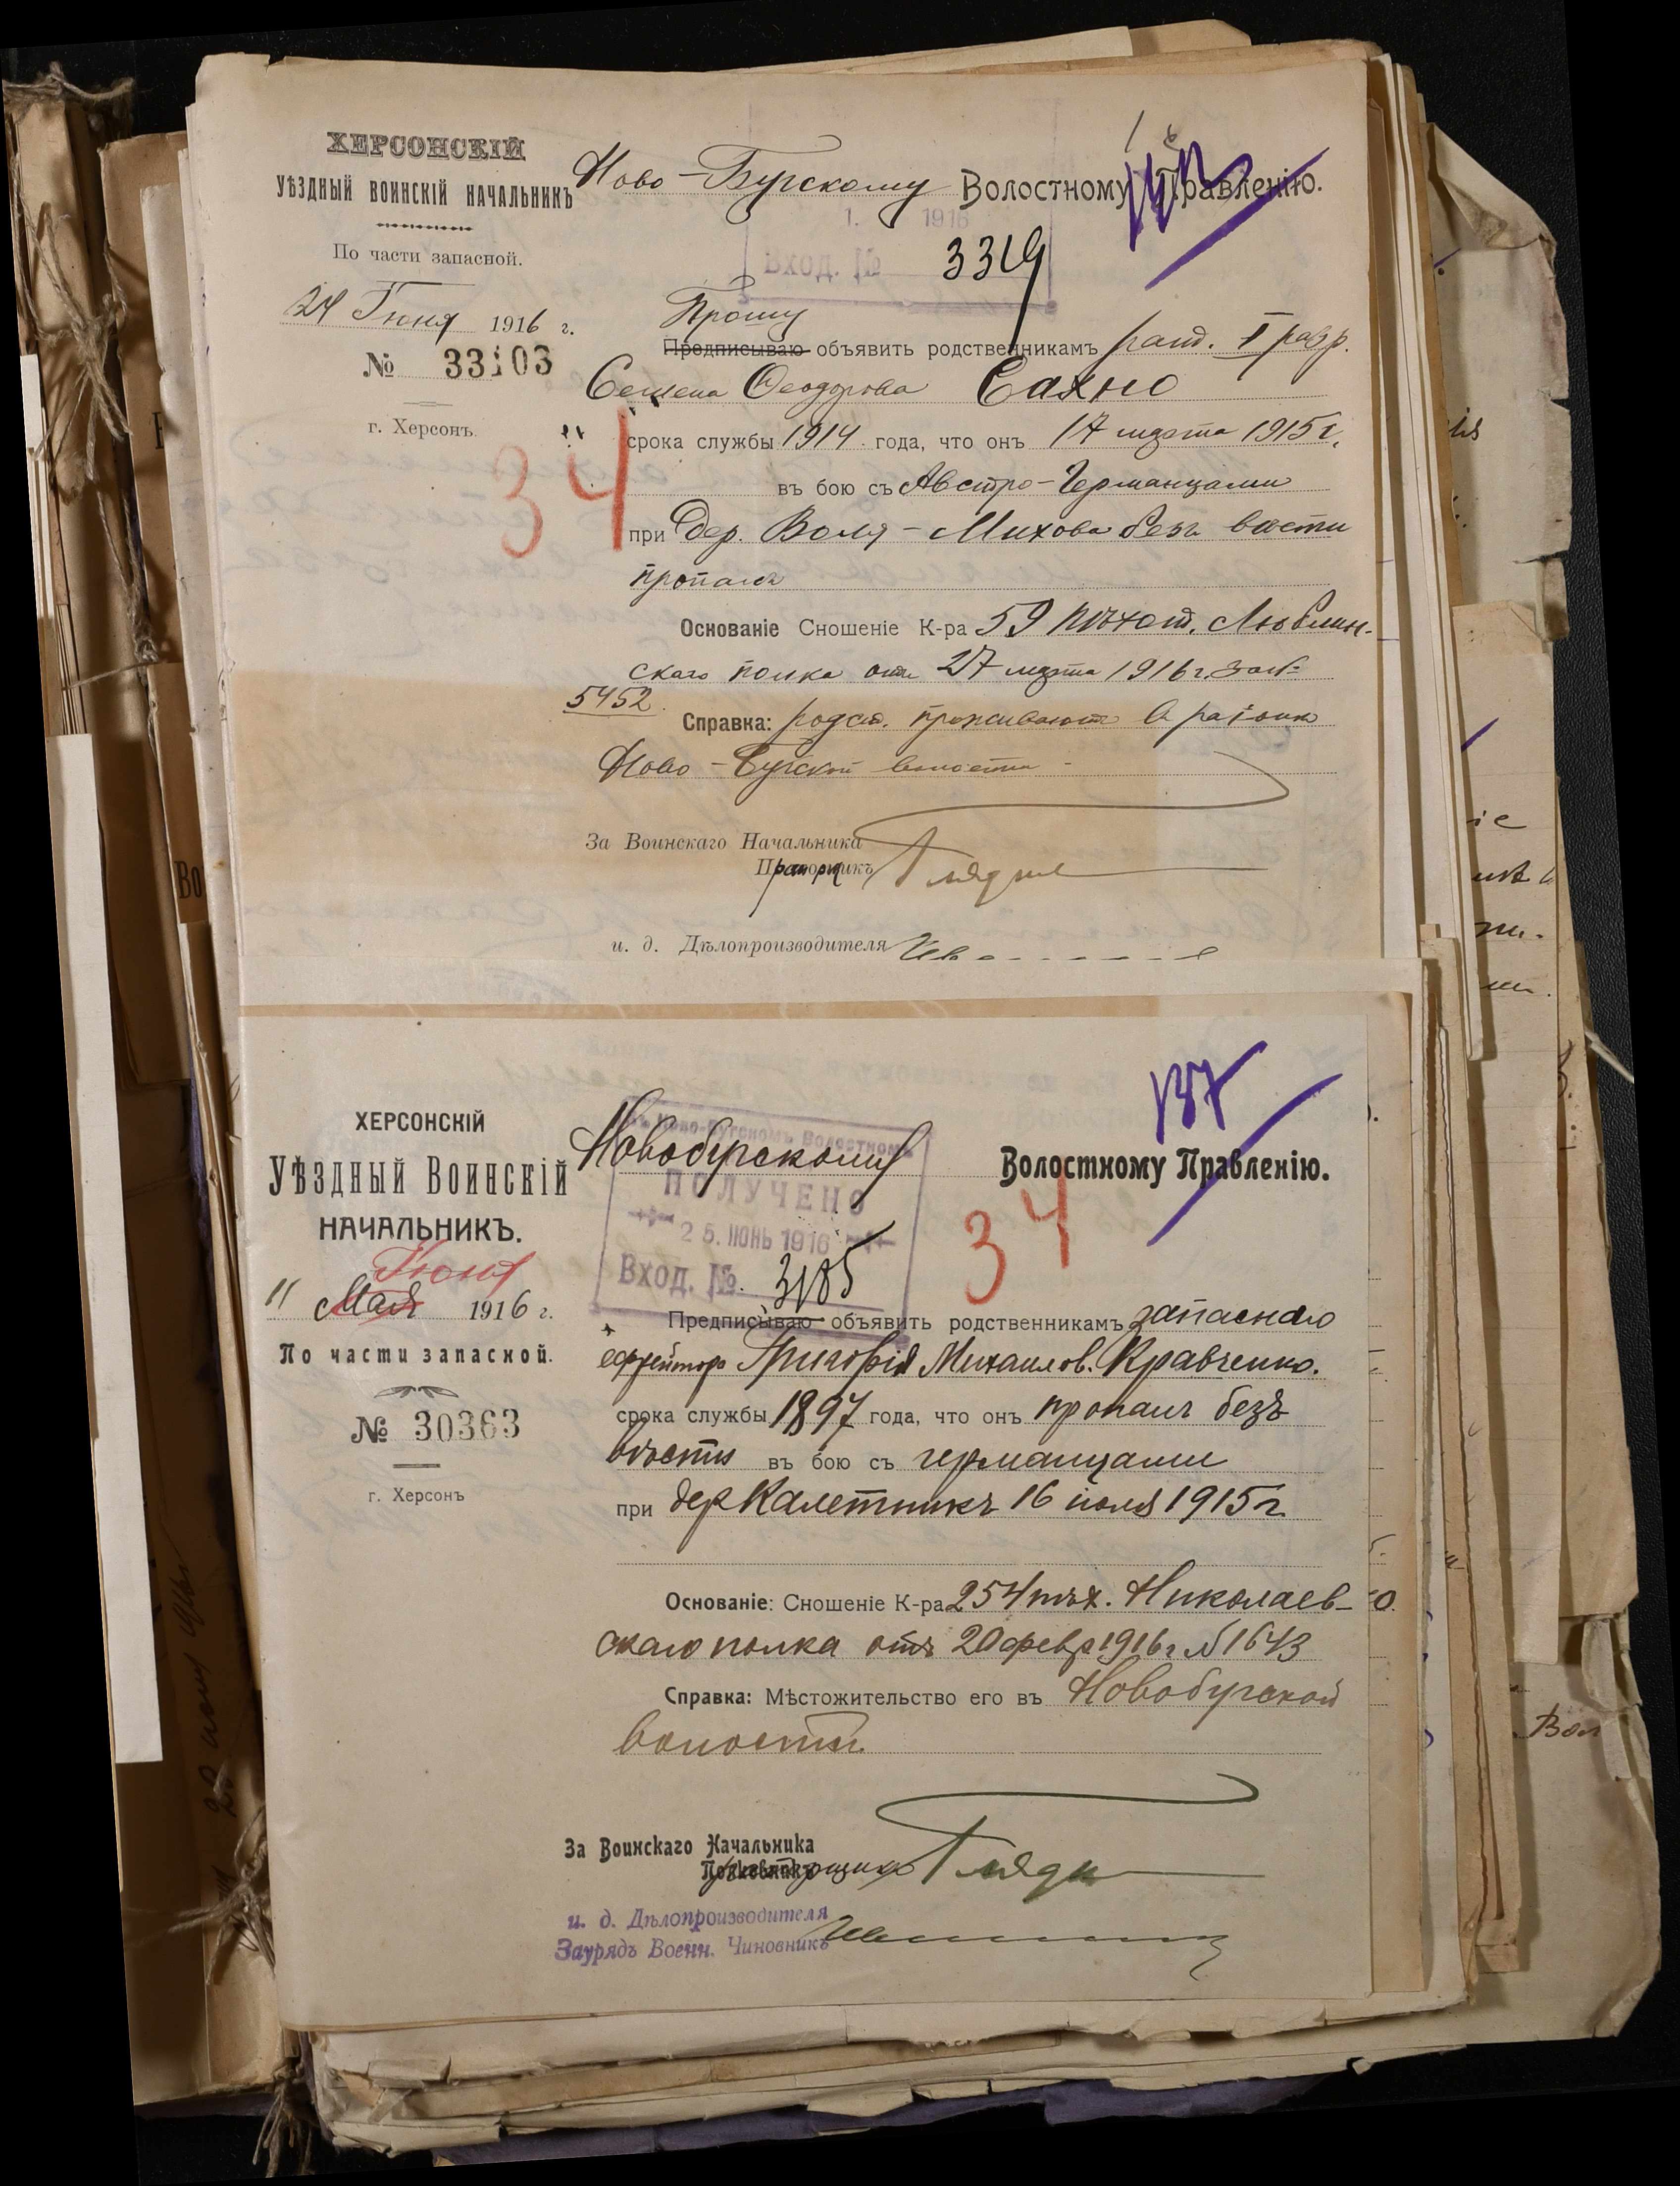 ХЕРСОНСКІЙ
УѢЗДНЫЙ ВОИНСКІЙ НАЧАЛЬНИКЪ
По части запасной.
24 Іюня 1916 г.
№ 33103
г. Херсонъ.
Ново-Бугскому Волостному Правленію.
1. 1916
Вход. № 3319
34
Прошу
Предписываю объявить родственникамъ рат. I разр.
Семена Феодорова Сахно
срока службы 1914 года, что онъ 17 марта 1915 г.
въ бою съ Австро-Германцами
при дер. Воля-Михова безъ вести
пропалъ
Основаніе Сношеніе К-ра 59 пѣхот. Люблин-
скаго полка отъ 27 марта 1916 г. за №
5452
Справка: родст. проживаютъ въ районѣ
Ново-Бугской волости
За Воинскаго Начальника
и. д. Дѣлопроизводителя
ХЕРСОНСКІЙ
УѢЗДНЫЙ ВОИНСКІЙ
НАЧАЛЬНИКЪ.
Іюня
11 Мая 1916 г.
По части запасной.
№ 30363
г. Херсонъ
137
Новобугскому Волостному Правленію.
ПОЛУЧЕНО
25. ИЮНЬ 1916
Вход. №. 3185
34
Предписываю объявить родственникамъ запаснаго
ефрейтора Григорія Михаилов. Кравченко.
срока службы 1897 года, что онъ пропалъ безъ
вѣсти въ бою съ германцами
при дер Калетникъ 16 іюля 1915 г.
Основаніе: Сношеніе К-ра 254 пѣх. Николаев-
скаго полка отъ 20 февр 1916 г № 1643
Справка: Мѣстожительство его въ Новобугской
волости.
За Воинскаго Начальника
и. д. Дѣлопроизводителя
Заурядъ Военн. Чиновникъ